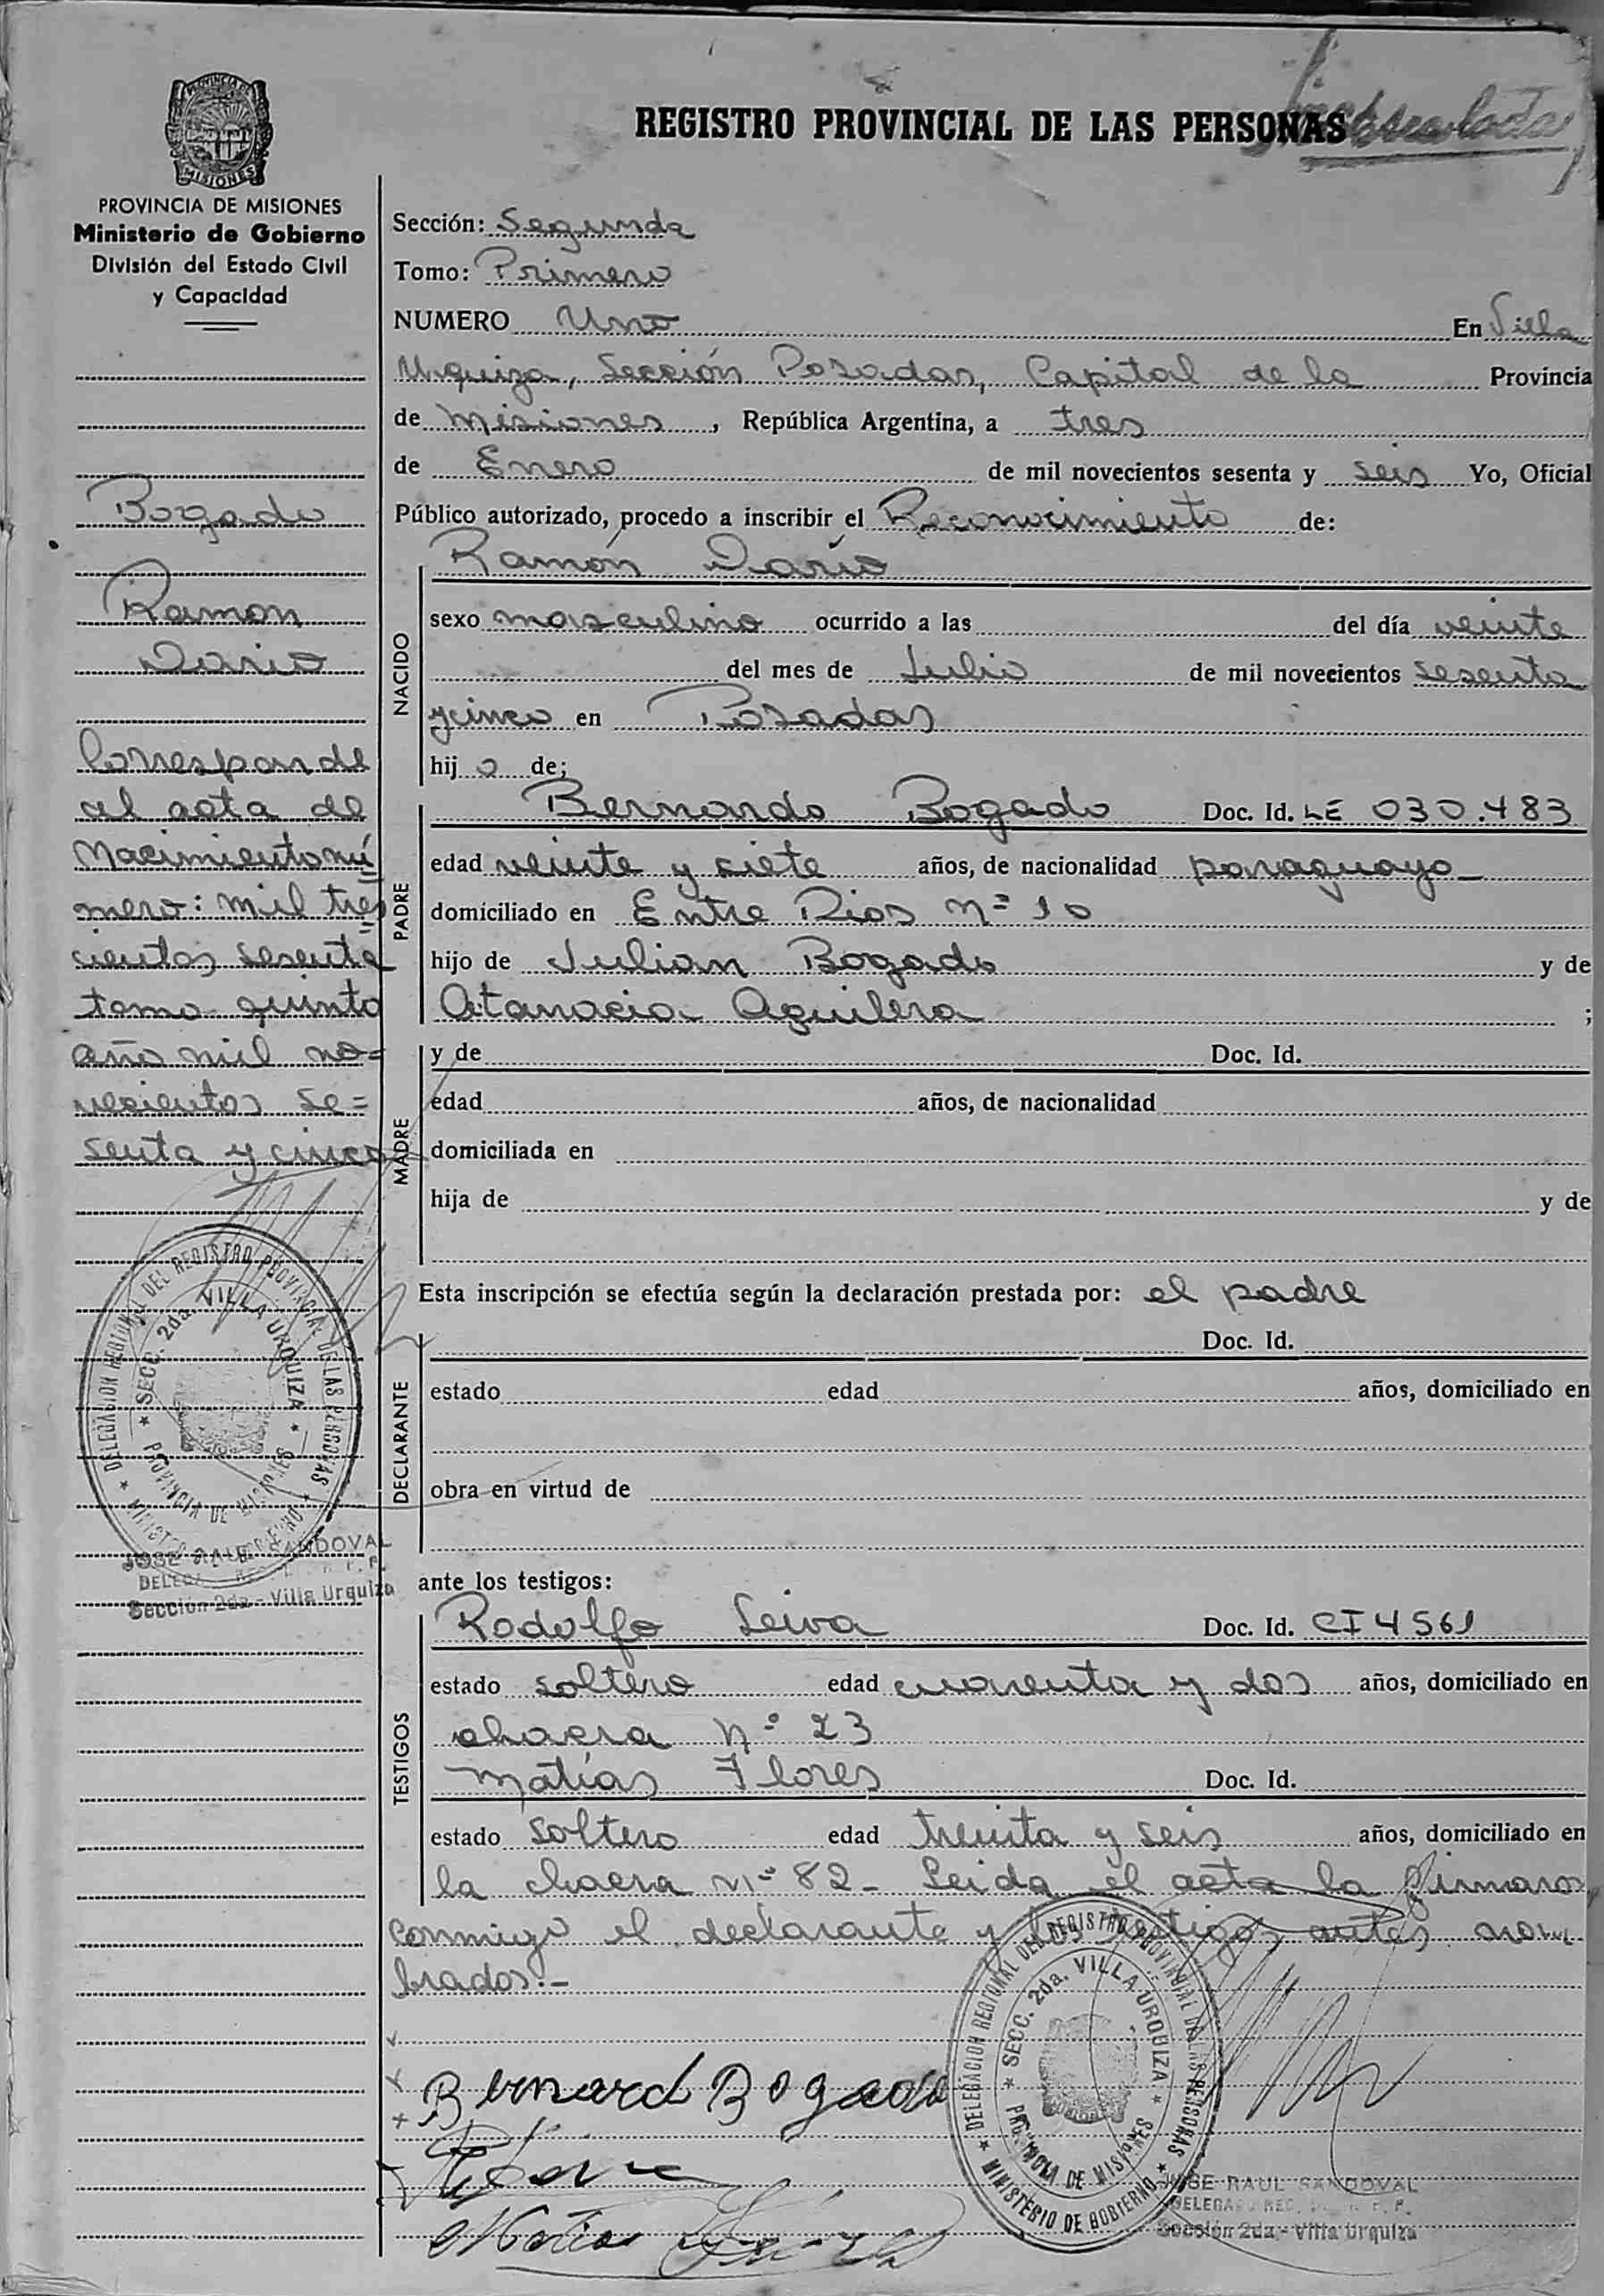 REGISTRO PROVINCIAL DE LAS PERSONAS
MISIONES
PROVINCIA DE MISIONES
Ministerio de Gobierno
División del Estado Civil
y Capacidad
Bogado
Ramon
Dario
Corresponde
al acta de
Nacimiento nú
mero: mil tres
cientos sesenta
tomo quinto
año mil no=
vecientos se=
senta y cinco
DELEGACION REGIONAL DEL REGISTRO PROVINCIAL DE LAS PERSONAS
SECC. 2da. VILLA URQUIZA
PROVINCIA DE MISIONES
MINISTERIO DE GOBIERNO
JOSE RAUL SANDOVAL
Sección 2da - Villa Urquiza
Sección: Segunda
Tomo: Primero
NUMERO Uno En Villa
Urquiza, Sección Posadas, Capital de la Provincia
de Misiones, República Argentina, a tres
de Enero de mil novecientos sesenta y seis Yo, Oficial
Público autorizado, procedo a inscribir el Reconocimiento de:
Ramón Darío
NACIDO
sexo masculino ocurrido a las del día veinte
del mes de Julio de mil novecientos sesenta
y cinco en Posadas
hij o de;
PADRE
Bernardo Bogado Doc. Id. LE 030.483
edad veinte y siete años, de nacionalidad paraguayo
domiciliado en Entre Rios Nº 10
hijo de Julian Bogado y de
Atanacia Aguilera ;
MADRE
y de Doc. Id.
edad años, de nacionalidad
domiciliada en
hija de y de
Esta inscripción se efectúa según la declaración prestada por: el padre
DECLARANTE
Doc. Id.
estado edad años, domiciliado en
obra en virtud de
ante los testigos:
TESTIGOS
Rodolfo Leiva Doc. Id. CI 4561
estado soltero edad cuarenta y dos años, domiciliado en
chacra Nº 23
Matías Flores Doc. Id.
estado soltero edad treinta y seis años, domiciliado en
la chacra Nº 82 - Leida el acta la firmaron
conmigo el declarante y los testigos antes nom
brados.-
Bernard Bogado
Matias
DELEGACION REGIONAL DEL REGISTRO PROVINCIAL DE LAS PERSONAS
SECC. 2da. VILLA URQUIZA
PROVINCIA DE MISIONES
MINISTERIO DE GOBIERNO
JOSE RAUL SANDOVAL
Sección 2da - Villa Urquiza